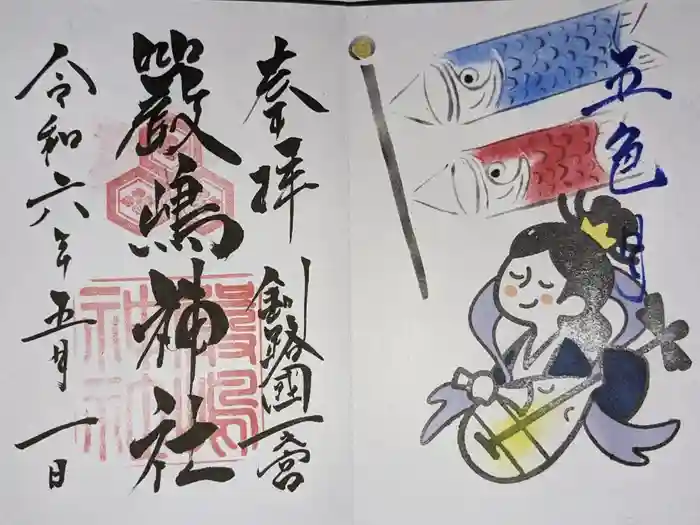 五色月
奉拝
釧路國一之宮
嚴嶋神社
嚴嶋神社
令和六年五月一日